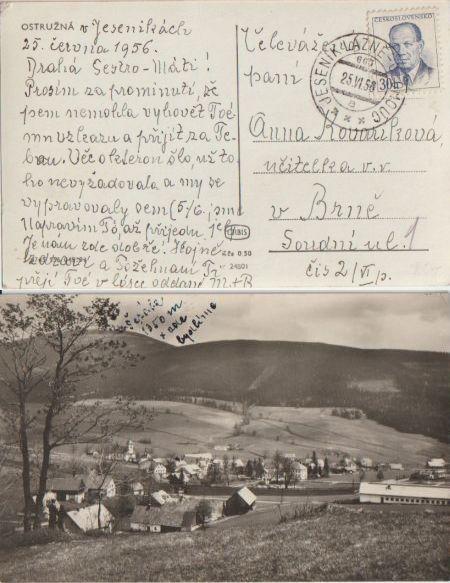 OSTRUŽNÁ v Jeseníkách
25. června 1956.
Drahá Sestro-Máti!
Prosím za prominutí, že
jsem nemohla vyhovět Tvé-
mu vzkazu a přijít za Te-
bou. Věc o telefon šlo, už to-
ho nevyžadovala a my se
vypravovaly sem (5/6.) jsme
Napravím Tó, až přijedu, je-li
Je nám zde dobře! Hojně
zdraví a Požehnání Ti
přejí Tvé v lásce oddané M.+B
ORBIS
Kčs 0,50
24801
ČESKOSLOVENSKO
30h
JESENÍK LÁZNĚ
25.VI.56
a
Velevážená
paní
Anna Kovaříková,
učitelka v.v.
v Brně 1
Soudní ul.
čís 2/VI p.
1350 m
+ zde
bydlíme